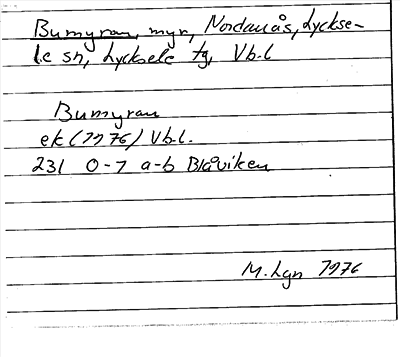 Bumyran, myr, Nordanås, Lyckse-
le sn, Lycksele tg, Vb.l
Bumyran
ek (1976) Vb.l.
231 0-1 a-b Blåviken
M. Lgn 1976